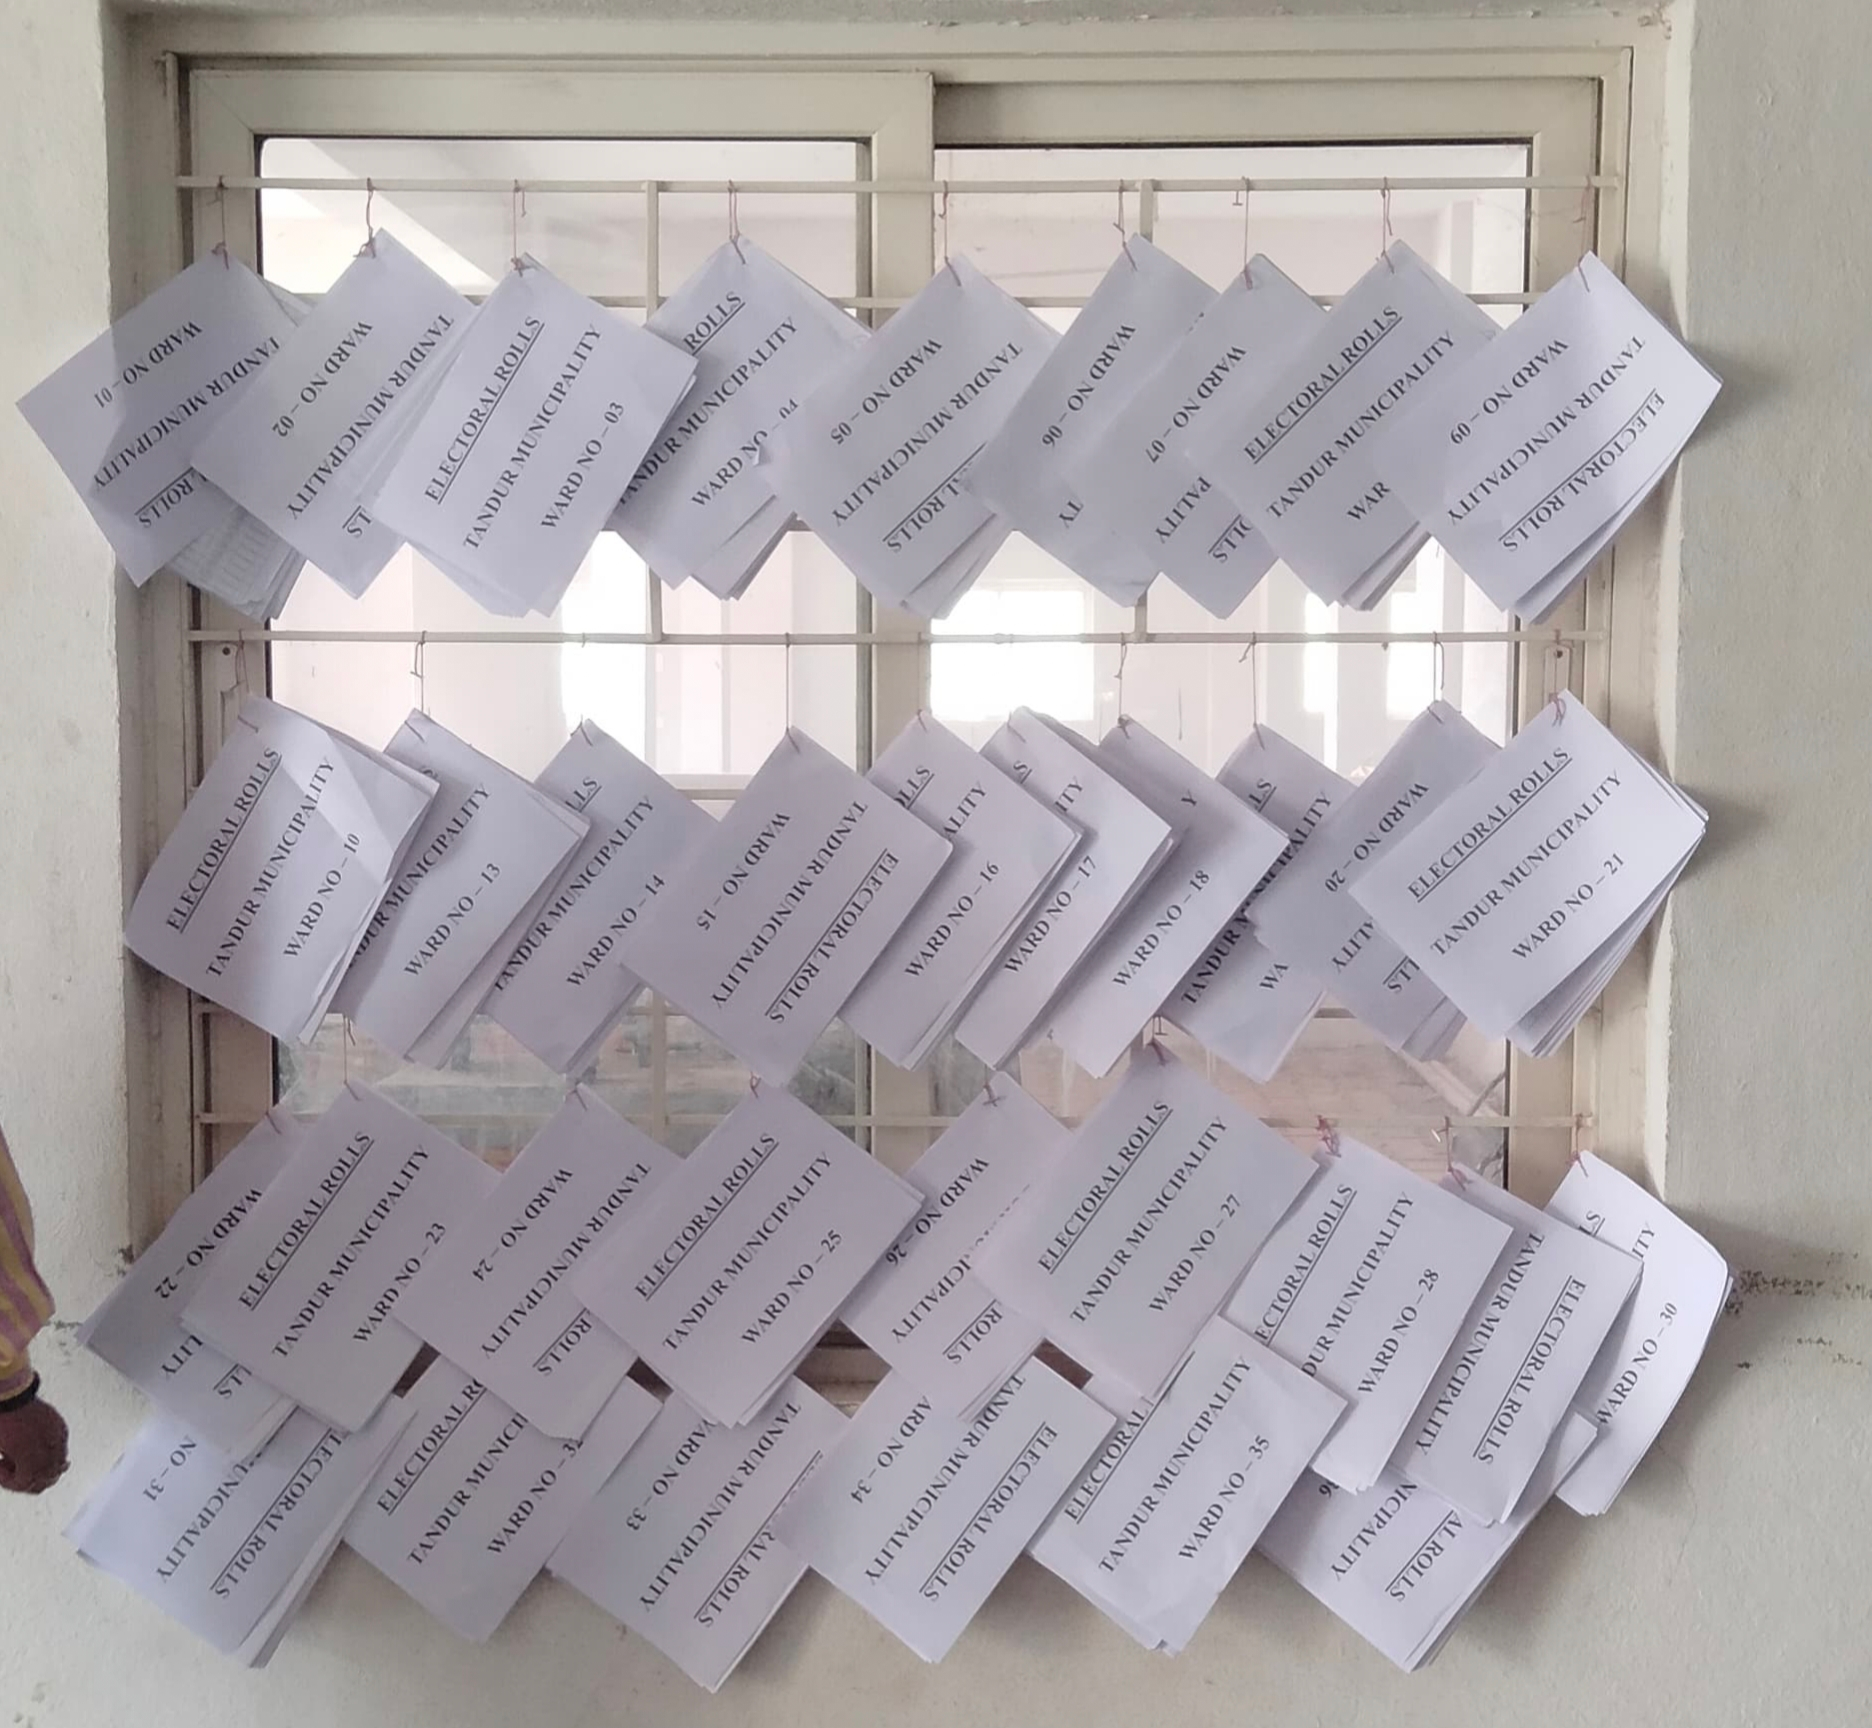 WARD NO – 01
TANDUR MUNICIPALITY
ROLLS
WARD NO – 02
TANDUR MUNICIPALITY
ELECTORAL ROLLS
TANDUR MUNICIPALITY
WARD NO – 03
ROLLS
TANDUR MUNICIPALITY
WARD NO – 04
WARD NO – 05
TANDUR MUNICIPALITY
ROLLS
WARD NO – 06
WARD NO – 07
ELECTORAL ROLLS
TANDUR MUNICIPALITY
WARD NO – 09
TANDUR MUNICIPALITY
ELECTORAL ROLLS
ELECTORAL ROLLS
TANDUR MUNICIPALITY
WARD NO – 10
MUNICIPALITY
WARD NO – 13
TANDUR MUNICIPALITY
WARD NO – 14
WARD NO – 15
TANDUR MUNICIPALITY
ELECTORAL ROLLS
WARD NO – 16
WARD NO – 17
WARD NO – 18
TANDUR MUNICIPALITY
WARD NO – 20
ELECTORAL ROLLS
TANDUR MUNICIPALITY
WARD NO – 21
WARD NO – 22
ELECTORAL ROLLS
TANDUR MUNICIPALITY
WARD NO – 23
WARD NO – 24
TANDUR MUNICIPALITY
ROLLS
ELECTORAL ROLLS
TANDUR MUNICIPALITY
WARD NO – 25
WARD NO – 26
ROLLS
ELECTORAL ROLLS
TANDUR MUNICIPALITY
WARD NO – 27
ECTORAL ROLLS
DUR MUNICIPALITY
WARD NO – 28
TANDUR MUNICIPALITY
ELECTORAL ROLLS
WARD NO – 30
NO – 31
UNICIPALITY
LECTORAL ROLLS
ELECTORAL RO
TANDUR MUNICI
WARD NO – 32
WARD NO – 33
TANDUR MUNICIPALITY
RAL ROLLS
ARD NO – 34
TANDUR MUNICIPALITY
ELECTORAL ROLLS
ELECTORAL
TANDUR MUNICIPALITY
WARD NO – 35
NICIPALITY
AL ROLLS